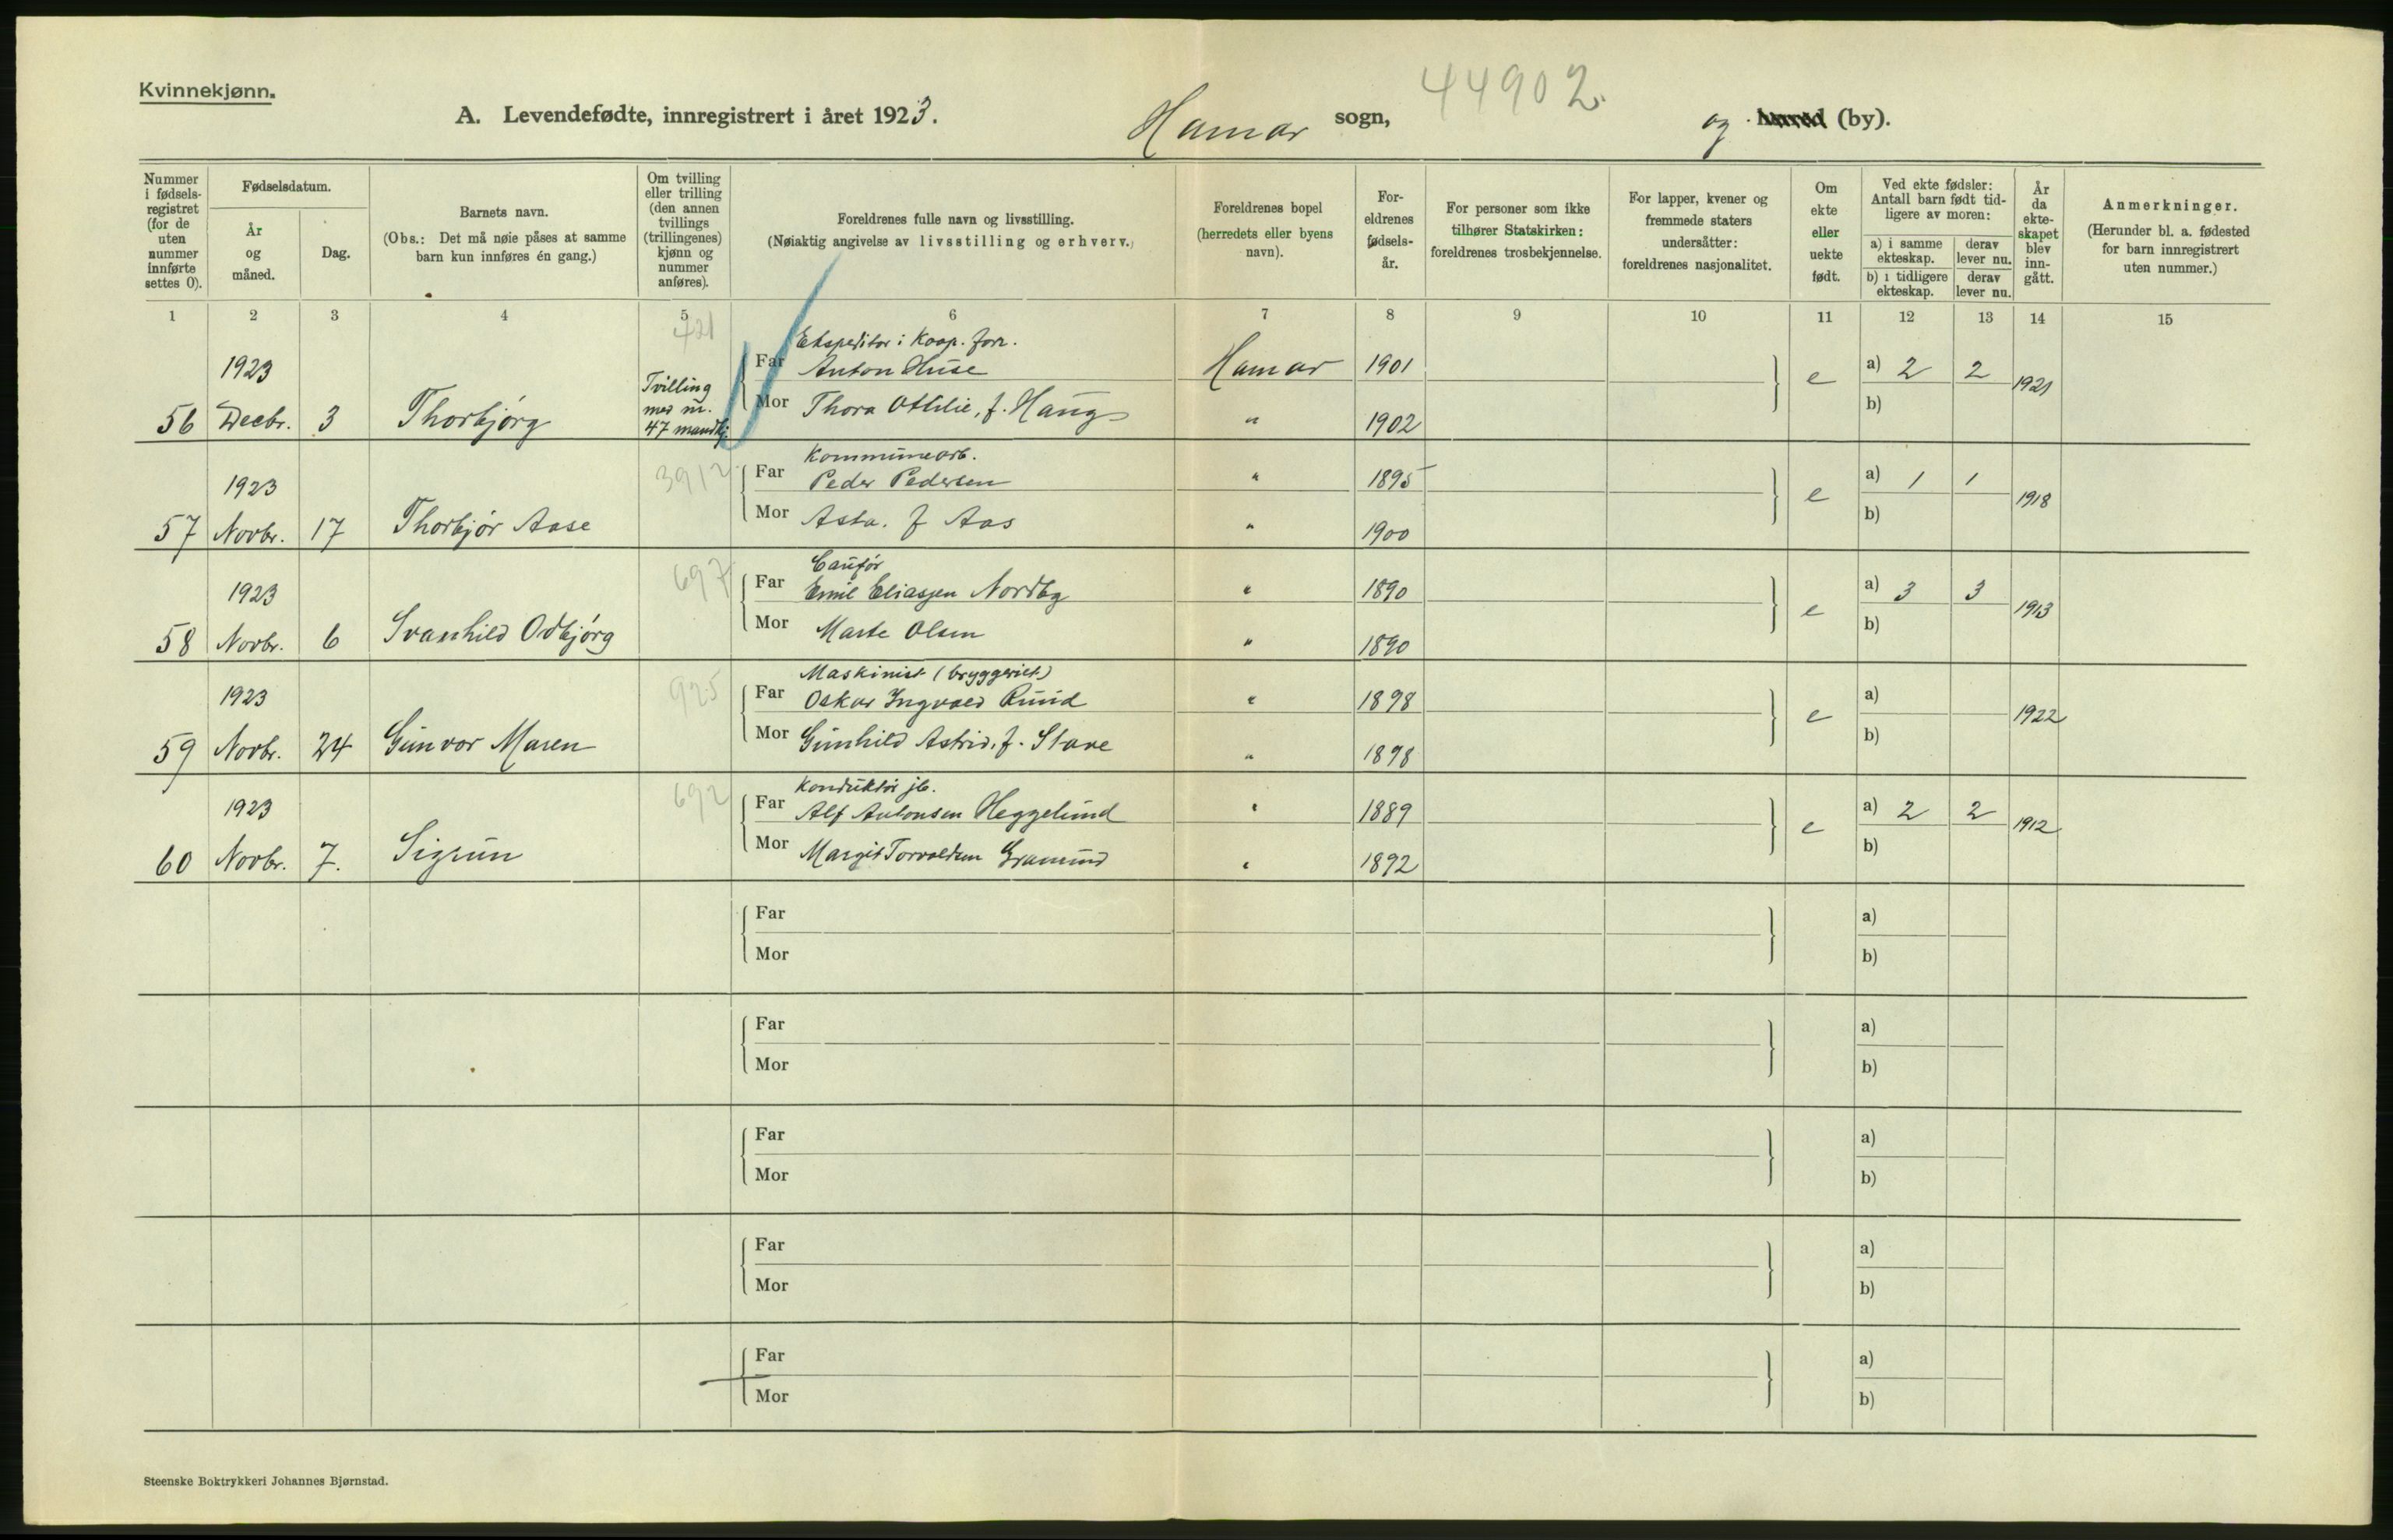 Kvinnekjønn.
44902.
A. Levendefødte, innregistrert i året 1923. Hamar sogn, og herred (by).
Nummer i fødselsregistret (for de uten nummer innførte settes 0).
Fødselsdatum.
År og måned.
Dag.
Barnets navn.
(Obs.: Det må nøie påses at samme barn kun innføres én gang.)
Om tvilling eller trilling (den annen tvillings (trillingenes) kjønn og nummer anføres).
Foreldrenes fulle navn og livsstilling.
(Nøiaktig angivelse av livsstilling og erhverv.)
Foreldrenes bopel (herredets eller byens navn).
Foreldrenes fødselsår.
For personer som ikke tilhører Statskirken: foreldrenes trosbekjennelse.
For lapper, kvener og fremmede staters undersåtter: foreldrenes nasjonalitet.
Om ekte eller uekte født.
Ved ekte fødsler: Antall barn født tidligere av moren:
a) i samme ekteskap.
derav lever nu.
b) i tidligere ekteskap.
derav lever nu.
År da ekteskapet blev inngått.
Anmerkninger.
(Herunder bl. a. fødested for barn innregistrert uten nummer.)
1 2 3 4 5 6 7 8 9 10 11 12 13 14 15
421
Ekspeditør i Koop. forr.
1923 Far Anton Huse Hamar 1901 e a) 2 2 1921
Tvilling med nr. 47 mandkj.
56 Decbr. 3 Thorbjørg Mor Thora Othilie, f. Haug " 1902 b)
3912
Kommunearb.
1923 Far Peder Pedersen " 1895 e a) 1 1 1918
57 Novbr. 17 Thorbjør Aase Mor Asta. f Aas " 1900 b)
697
Caufør
1923 Far Emil Eliassen Nordby " 1890 e a) 3 3 1913
58 Novbr. 6 Svanhild Odbjørg Mor Marte Olsen " 1890 b)
925
Maskinist (bryggeriet)
1923 Far Oskar Ingvald Ruud " 1898 e a) 1922
59 Novbr. 24 Gunvor Maren Mor Gunhild Astrid, f. Stave " 1898 b)
692
Konduktør jb.
1923 Far Alf Antonsen Heggelund " 1889 e a) 2 2 1912
60 Novbr. 7. Sigrun Mor Margit Torvaldsen Gramund " 1892 b)
Far a)
Mor b)
Far a)
Mor b)
Far a)
Mor b)
Far a)
Mor b)
Far a)
Mor b)
Steenske Boktrykkeri Johannes Bjørnstad.